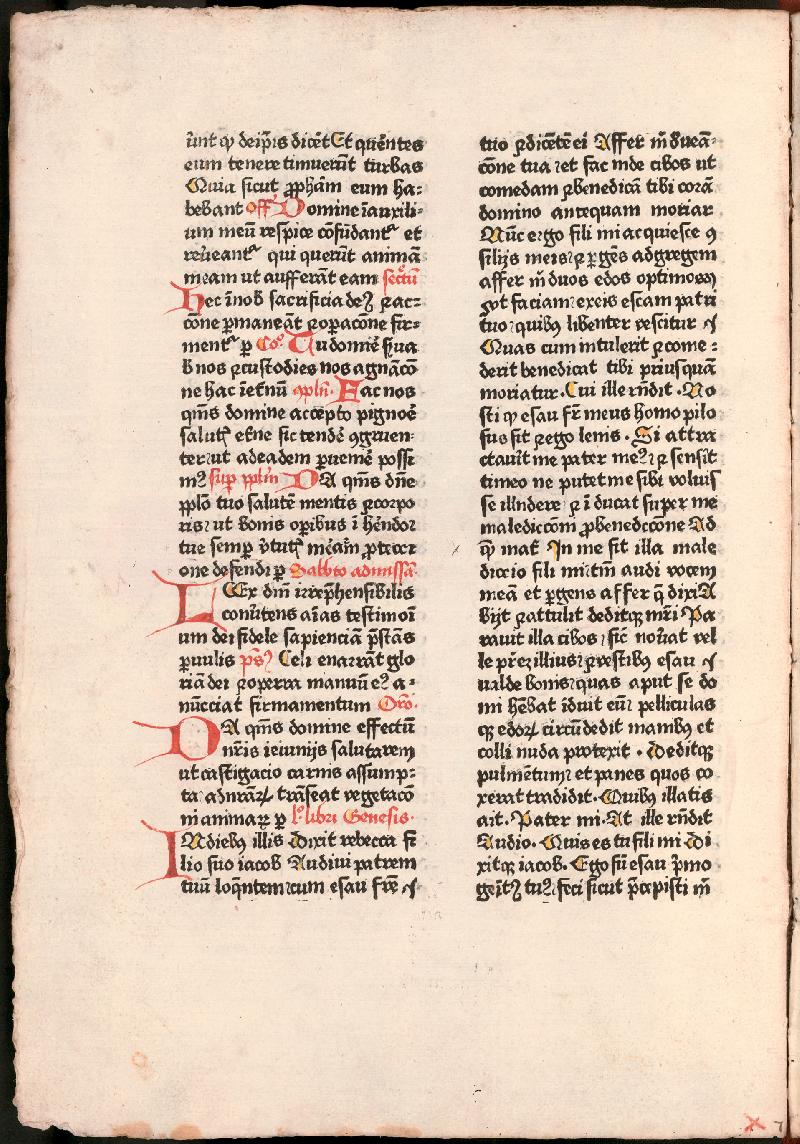 ūnt ꝙ deip̄is dicēt Et quēntes
eum tenere timuerūt turbas
Quia sicut ꝓphām eum ha⸗
bebant off̄ Domine ī auxili⸗
um meū respice cōfūdantᷣ et
reūeantᷣ qui querūt animā
meam ut aufferāt eam secᷣtū
Hec īnob sacrificia deꝰ ⁊ ac⸗
cōne ꝑmaneāt ⁊ oꝑacōne fir⸗
mentᷣ ꝑ Cōꝰ Tu domiē s̄ua
b nos ⁊ custodies nos agnācō
ne hac ī et̄nū ꝯplīt Fac nos
qm̄s domine accepto pignoē
salutꝭ et̄ne sic tendē ꝯgruen⸗
ter ut adeadem ꝑuenīē possi
mꝰ suꝑ pplm̄ DA qm̄s dn̄e
pplō tuo salutē mentis ⁊ corpo
ris ut bonis oꝑibus ī hēndoꝛ
tue semꝑ v̄tutꝭ meāiꝶ ꝓtecci
one defendi ꝑ Sabbto admissā
LEx dn̄i irrepͪhensibilis
conūtens aīas testimoī
um dei fidele sapienciā p̄stās
ꝑuulis p̄sꝰ Celi enarrāt glo
riā dei ⁊ opera manuū eꝰ a⸗
nūcciat firmamentum Orō
DA qm̄s domine effectū
nr̄is ieiunijs salutarem
ut castigacio carnis assump⸗
ta adnrārꝝ trāseat vegetacō
nī animaꝝ ꝑ lꝰ libri Genesis
INdiebꝰ illis Dixit rebecca fi
lio suo iacob Audiui patrem
tuū loqͣntem cum esau frē ꝛ
tuo ⁊ dicētē ei Affer m̄ d̄ueā⸗
cōne tua et fac inde cibos ut
comedam ⁊ benedicā tibi corā
domino antequam moriar
Nūc ergo fili mi acquiesce ꝯ
silijs meis ⁊ ꝑgēs adgregem
affer m̄ duos edos optimos
ꝯt faciam exeis escam patri
tuo quibꝰ libenter vescitur ꝛ
Quas cum intulerit ⁊ come⸗
derit benedicat tibi priusquā
moriatur. Cui ille rn̄dit. No
sti ꝙ esau fr̄ meus homo pilo
sus sit ⁊ ego lenis. Si attra
ctaūit me pater meꝰ ⁊ sensit
timeo ne putet me sibi voluis
se illudere ⁊ īducat super me
maledicōm ꝓ benediccōne Ad
qͣ̄ mat̄ In me sit illa male
diccio fili mi tm̄ audi vocem
meā et ꝑgens affer q̄ dixi A
bijt ⁊ attulit deditqꝫ mr̄i Pa
rauit illa cibos sic̄ noūat vel
le pr̄ez illius ⁊ vestibꝰ esau ꝛ
ualde bonis quas aput se do
mi hēbat īduit eū pelliculas
qꝫ edoꝝ circūdedit manibꝰ et
colli nuda protexit. Deditqꝫ
pulmentum et panes quos co
xerat tradidit. Quibꝰ illatis
ait. Pater mi. At ille rn̄dit
Audio. Quis es tu fili mi Di
xitqꝫ iacob. Ego sū esau p̄mo
genitꝰ tuꝰ feci sicut p̄cepisti m̄